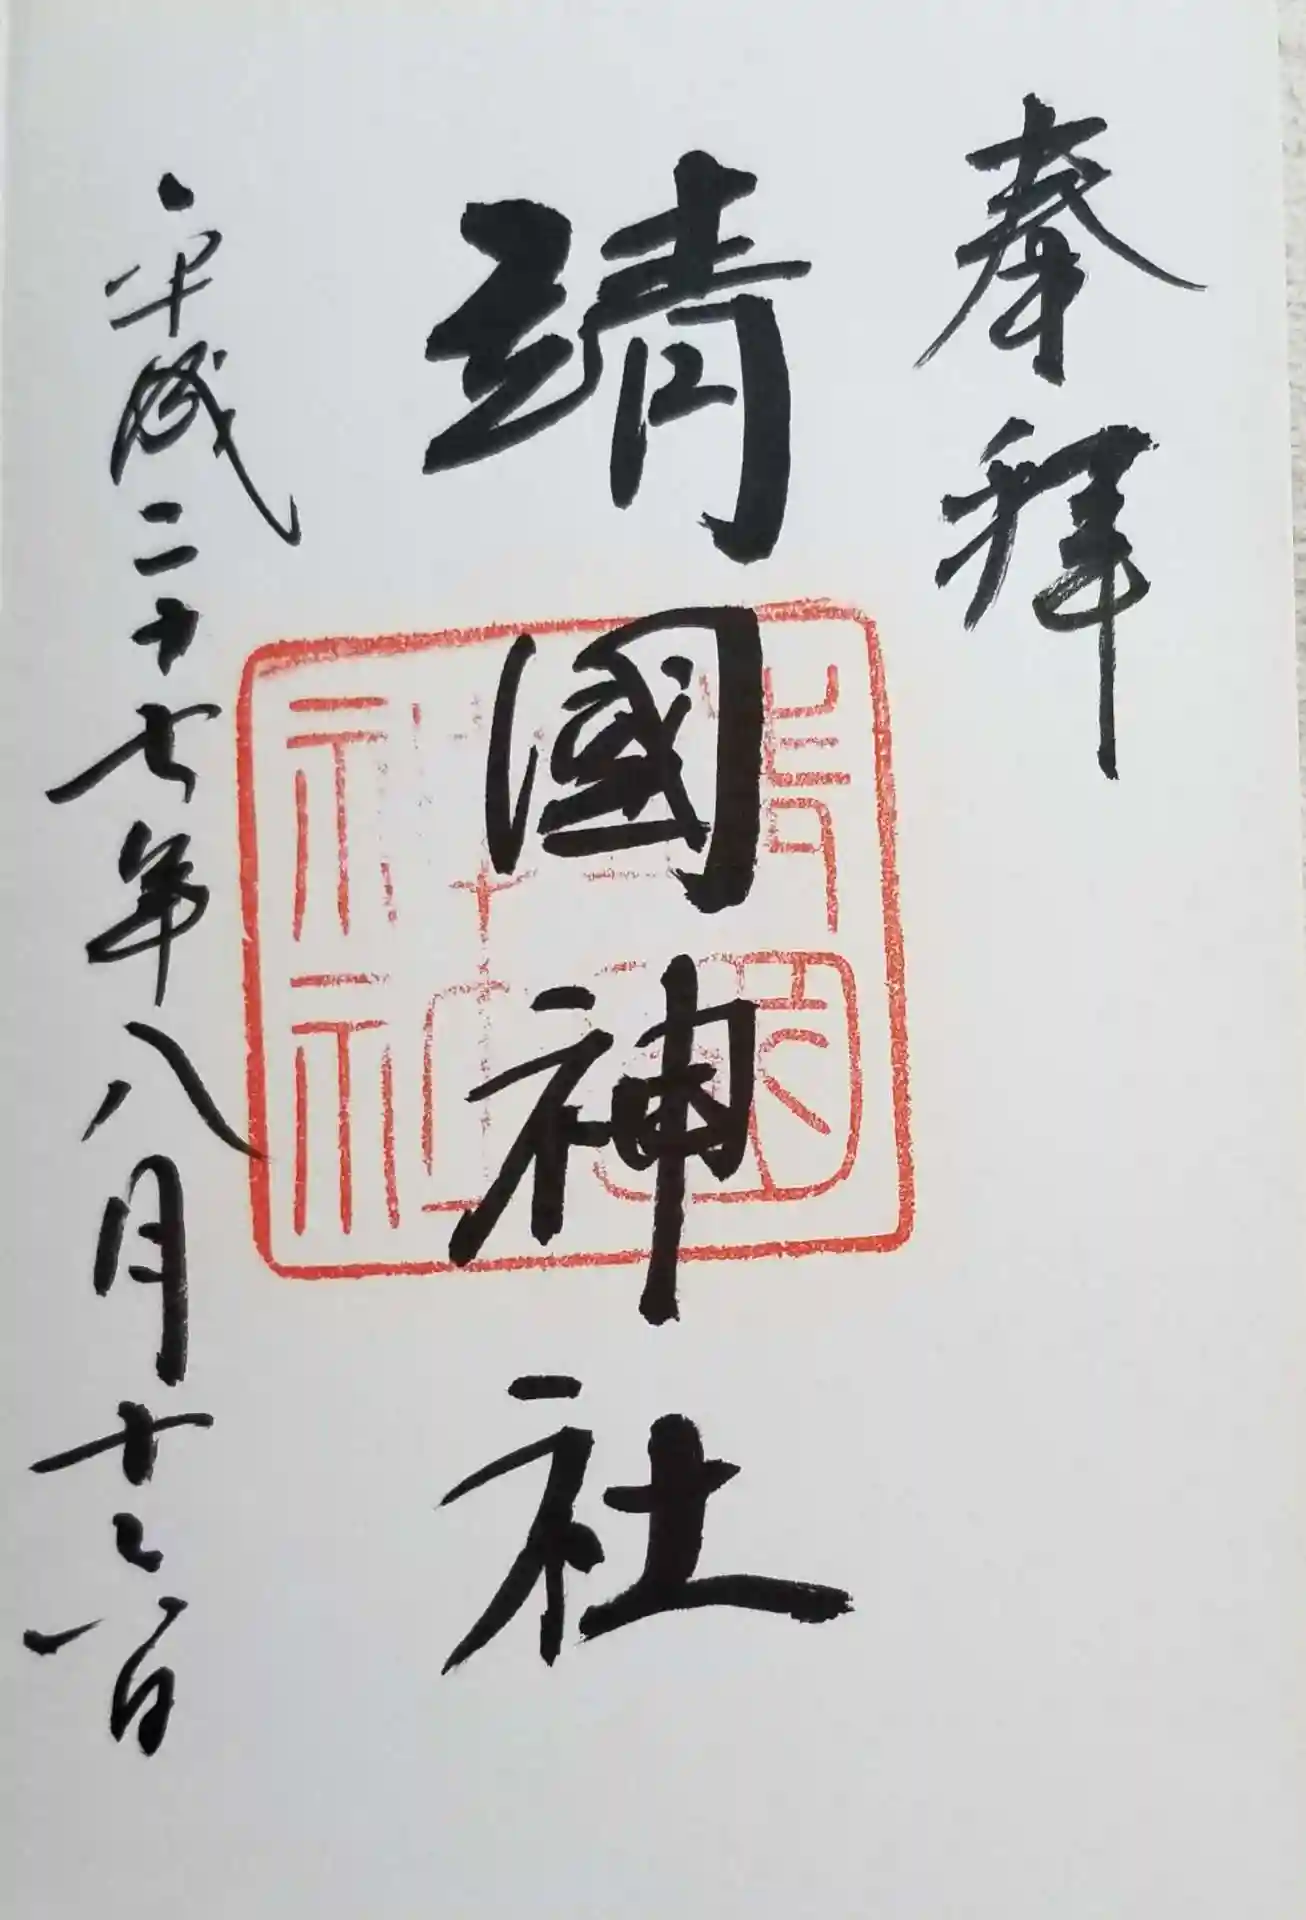 奉拝
靖國神社
平成二十七年八月十三日
靖國
神社